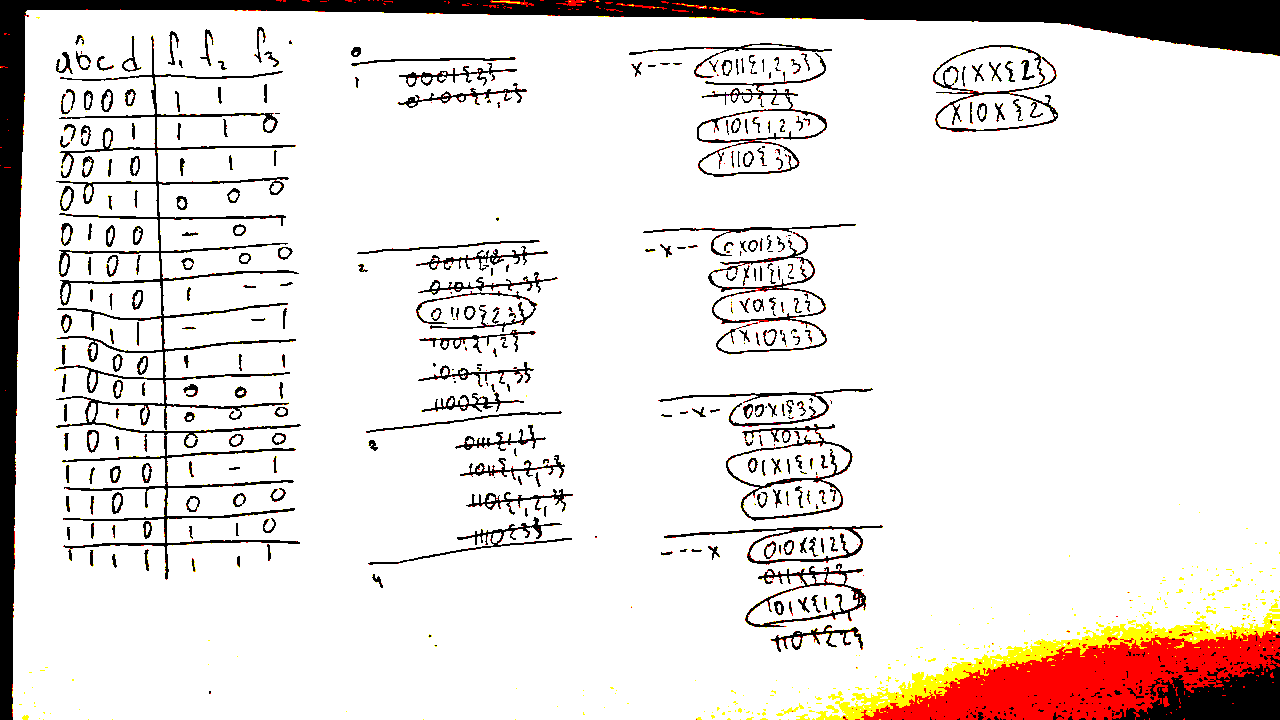 a b c d | f₁ f₂ f₃
0000 | 1 1 1
0001 | 1 1 0
0010 | 1 1 1
0011 | 0 0 0
0100 | - 0 1
0101 | 0 0 0
0110 | 1 - -
0111 | - - 1
1000 | 1 1 1
1001 | 0 0 1
1010 | 0 0 0
1011 | 0 0 0
1100 | 1 - 1
1101 | 0 0 0
1110 | 1 1 0
1111 | 1 1 1
0
1
0001{3}
0100{1,2}
2
0011{1,2,3}
0101{1,2,3}
0110{2,3}
1001{1,2}
1010{1,2,3}
1100{2}
0111{1,2}
1011{1,2,3}
1101{1,2,3}
1110{3}
4
x---
x011{1,2,3}
x100{2}
x101{1,2,3}
x110{3}
-x--
0x01{3}
0x11{1,2}
1x01{1,2}
1x10{3}
--x-
00x1{3}
01x0{2}
01x1{1,2}
10x1{1,2}
---x
010x{1,2}
011x{2}
101x{1,2,
110x{2}
01xx{2}
x10x{2}